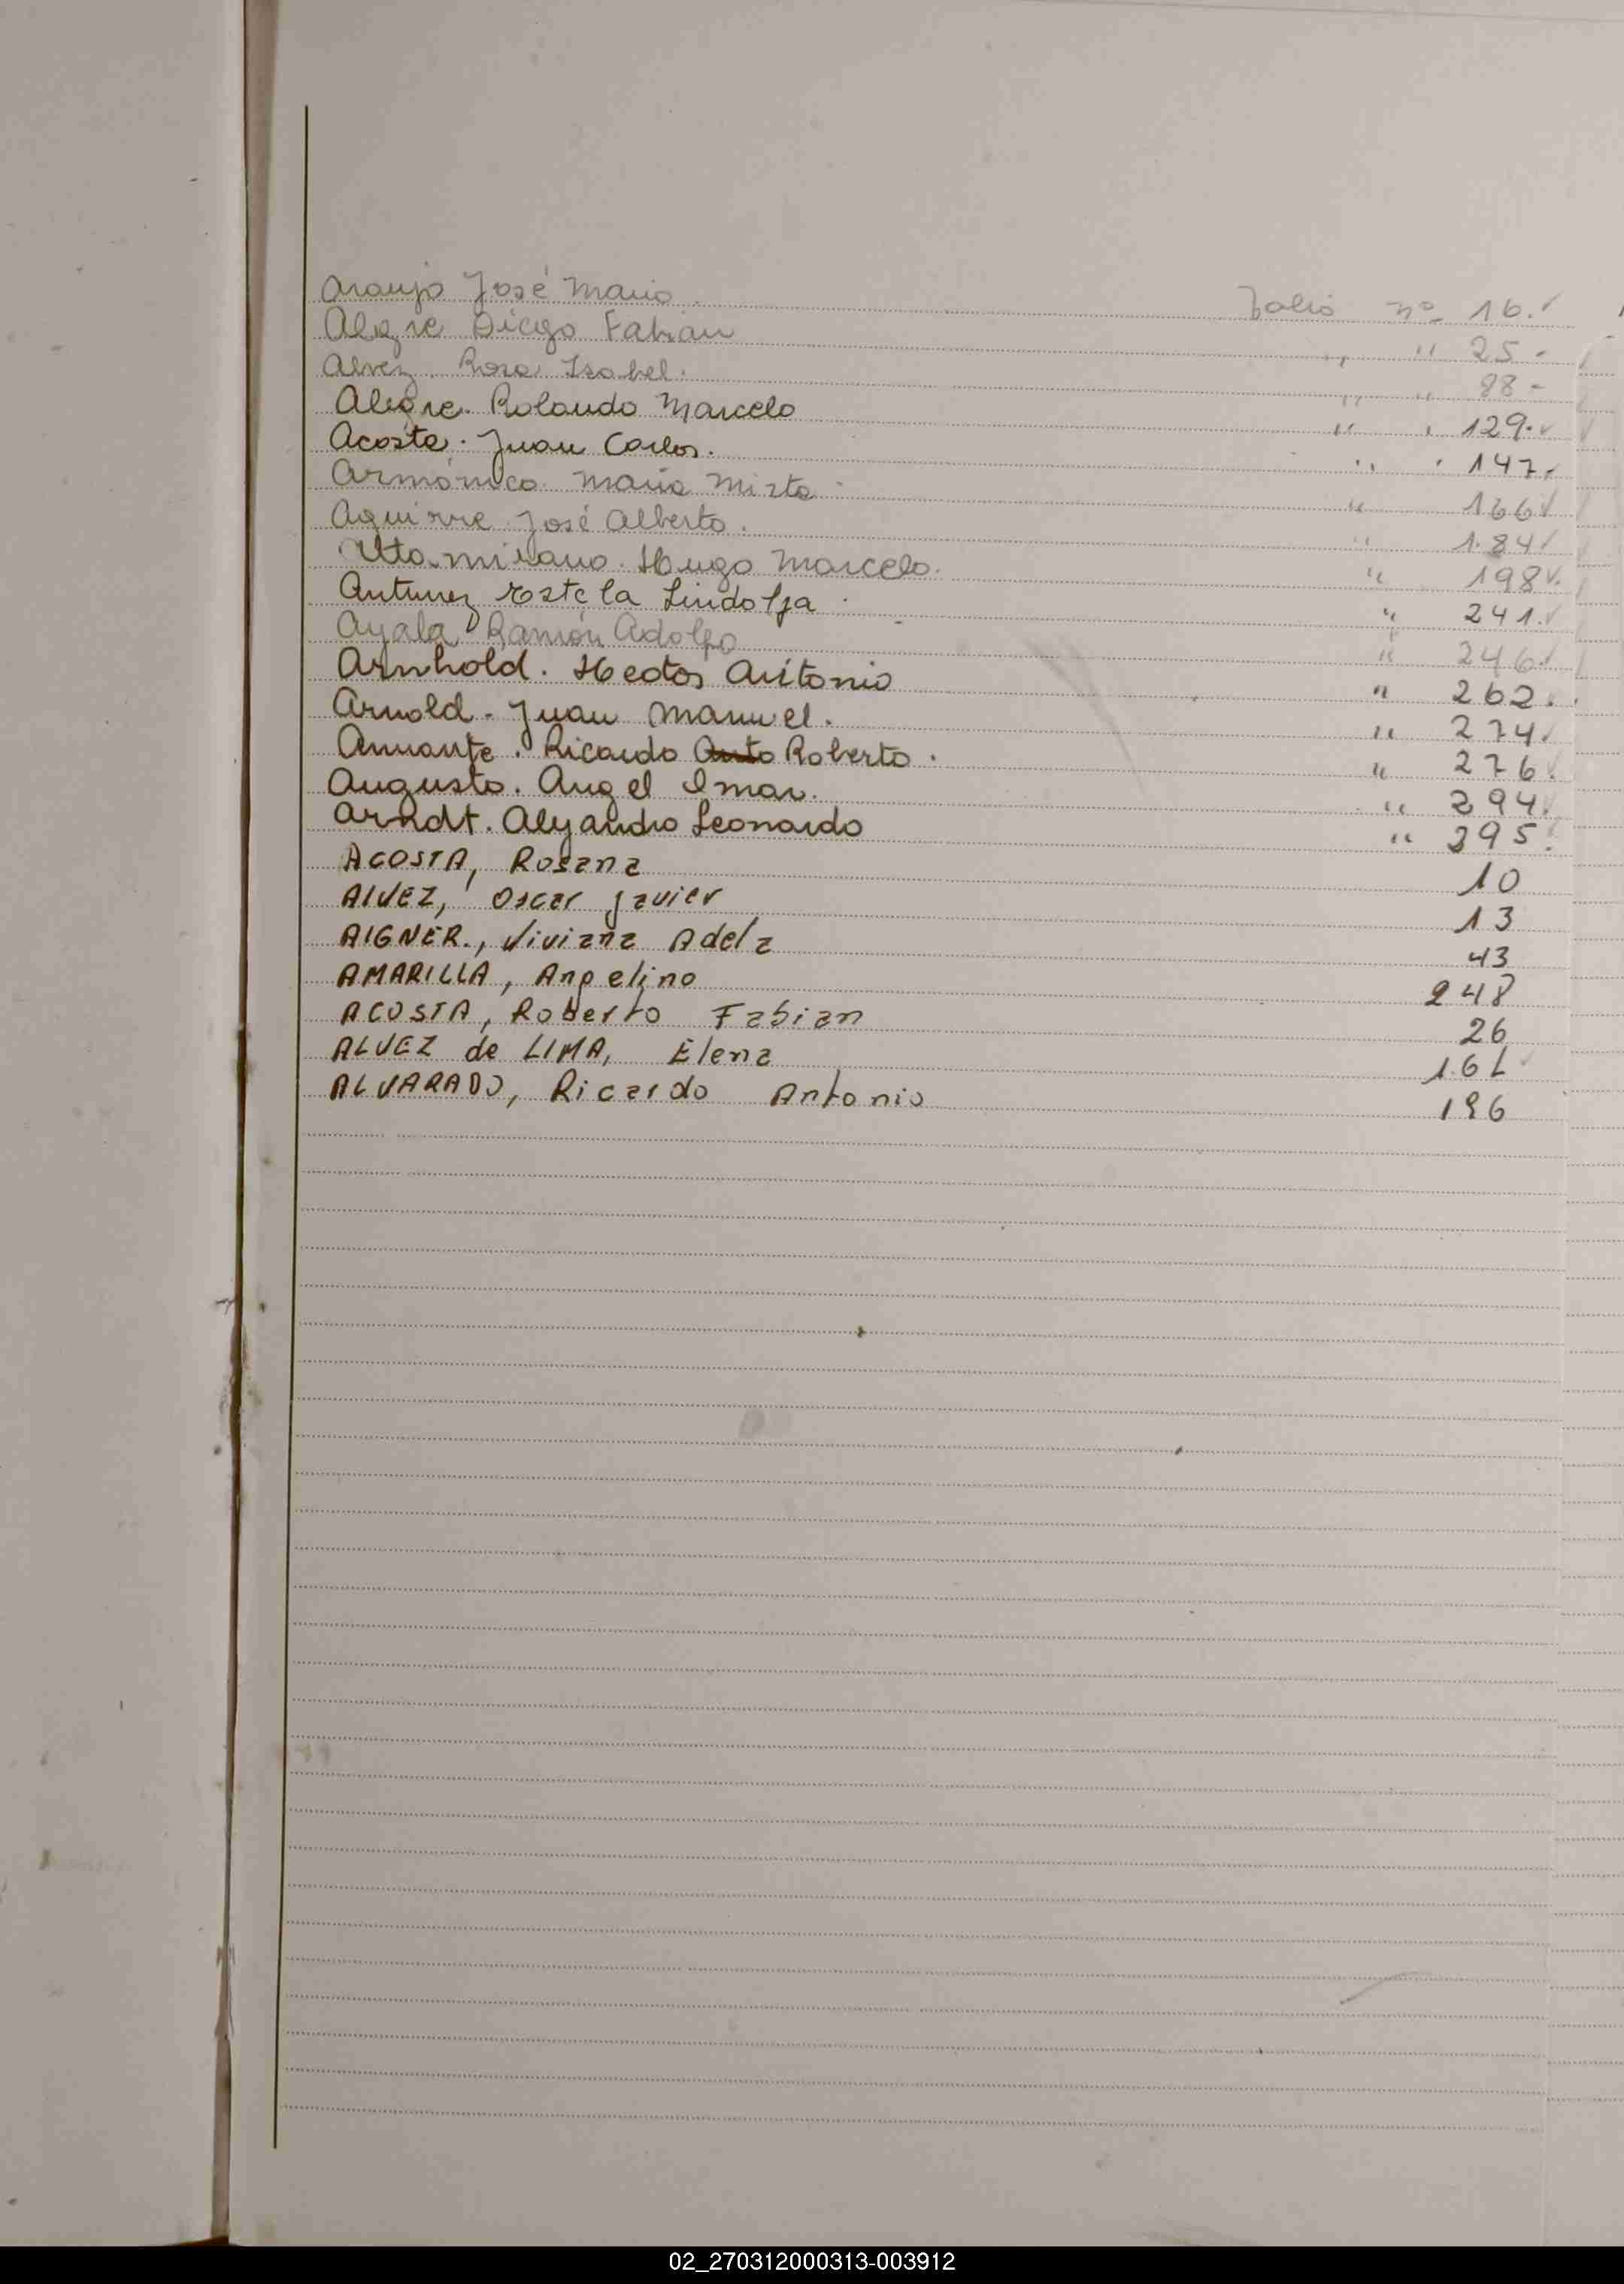 Araujo José Mario. Folio nº 16. ✓
Alegre Diego Fabian " " 25 -
Alvez. Rosa Isabel. " " 88 -
Alegre. Rolando Marcelo " " 129. ✓
Acosta. Juan Carlos. " " 147.
Armónica María Mirta " 166 ✓
Aguirre José Alberto. " 184 ✓
Altamirano. Hugo Marcelo. " 198 ✓.
Antunez Estela Lindolfa " 241. ✓
Ayala Ramón Adolfo " 246. ✓
Arnhold. Hector Antonio " 262.
Arnold. Juan Manuel. " 274.
Ricardo Roberto. " 276.
Augusto. Angel Imar. " 294.
Arndt. Alejandro Leonardo " 295.
ACOSTA, Rosana 10
ALVEZ, Oscar Javier 13
AIGNER., Viviana Adela 43
AMARILLA, Angelino 248
ACOSTA, Roberto Fabian 26
ALVEZ de LIMA, Elena
ALVARADO, Ricardo Antonio 196
02_270312000313-003912